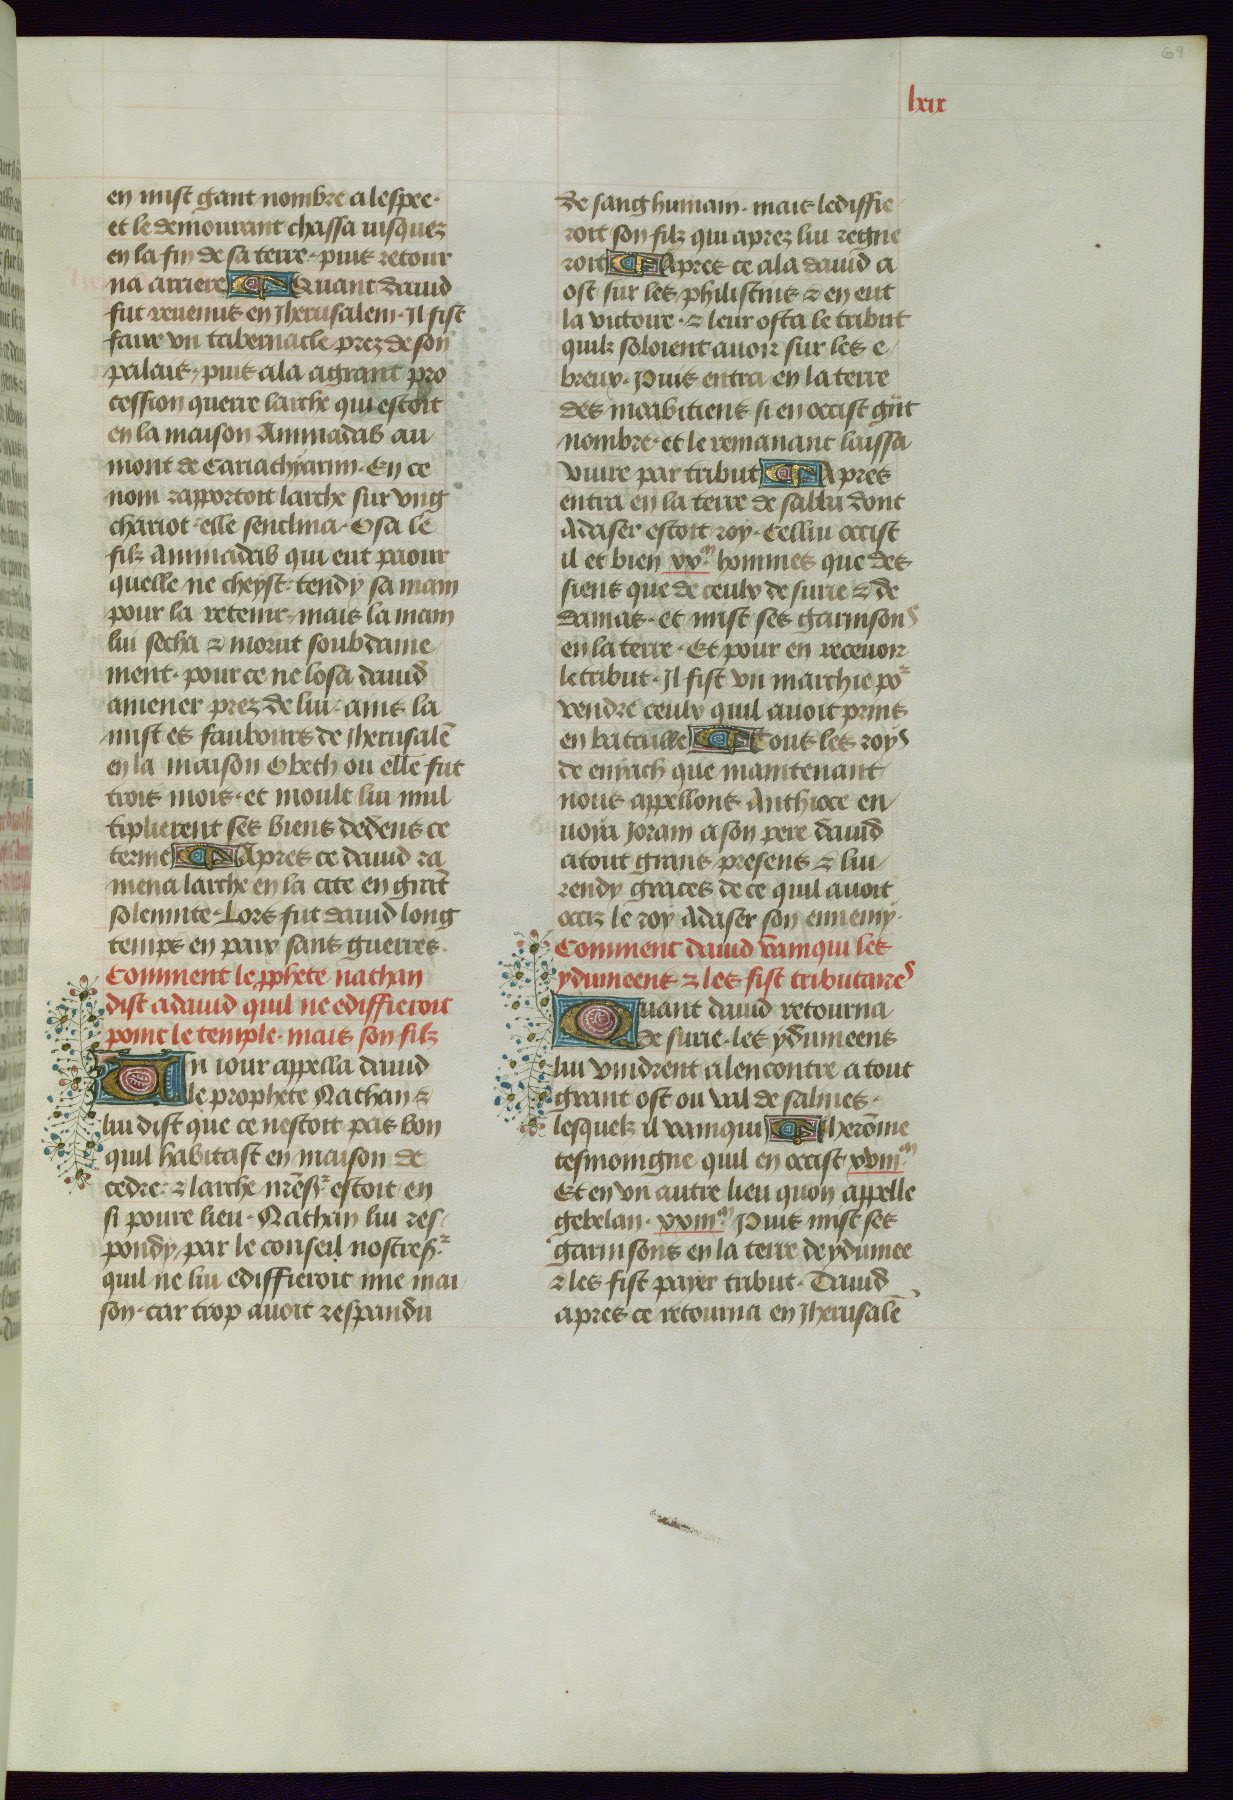 69
lxix
en mist gant nombre a lespee.
et le demourant chassa iusquez
en la fin de sa terre. puis retour
na arriere Quant dauid
fut reuenus en Jherusalem. Il fist
faire vn tabernacle prez de son
palais, puis ala a grant pro
cession querre larche qui estoit
en la maison Aminadab au
mont de Cariathyarim. En ce
nom rapportoit larche sur vng
chariot. elle senclina. Osa le
filz Aminadab qui eut paour
quelle ne cheyst. tendy sa main
pour la retenir. mais la main
lui secha & morut soubdaine
ment. pour ce ne losa dauid
amener prez de lui. ains la
mist es faubours de Jherusalē
en la maison Obeth ou elle fut
trois mois. et moult lui mul
tiplierent ses biens dedens ce
terme Apres ce dauid ra
mena larche en la cite en grāt
solennite. Lors fut dauid long
temps en paix sans guerres.
Comment le pphete nathan
dist a dauid quil ne ediffieroit
point le temple. mais son filz
Un iour appella dauid
le prophete Nathan &
lui dist que ce nestoit pas bon
quil habitast en maison de
cedre. & larche nrēs̄r estoit en
si poure lieu. Nathan lui res
pondy par le conseil nostre s.r
quil ne lui ediffieroit mie mai
son. car trop auoit respandu
de sang humain. mais lediffie
roit son filz qui aprez lui regne
roit Apres ce ala dauid a
ost sur les philistins & en eut
la victoire. & leur osta le tribut
quilz soloient auoir sur les e
breux. Puis entra en la terre
des moabitiens si en occist gūt
nombre. et le remanant laissa
viure par tribut Apres
entra en la terre de sabba dont
Adaser estoit roy. Cellui occist
il et bien xx.m hommes que des
siens que de ceulx de surie & de
damas. et mist ses garnisons
en la terre. Et pour en receuoir
le tribut. Il fist vn marchie por
vendre ceulx quil auoit prins
en bataille Tout les roys
de emach que maintenant
nous appellons Anthioce en
uoya Joram a son pere dauid
atout grans presens & lui
rendy graces de ce quil auoit
occiz le roy Adaser son ennemy.
Comment dauid vainqui les
ydumeens & les fist tributaires
Quant dauid retourna
de surie. les ydumeens
lui vindrent alencontre a tout
grant ost ou val de salines.
lesquelz il vainqui Jherōme
tesmoingne quil en occist xviii.m
Et en vn autre lieu quon appelle
gebelan. xxiii.m Puis mist ses
garnisons en la terre de ydumee
& les fist payer tribut. Dauid
apres ce retourna en Jherusalē